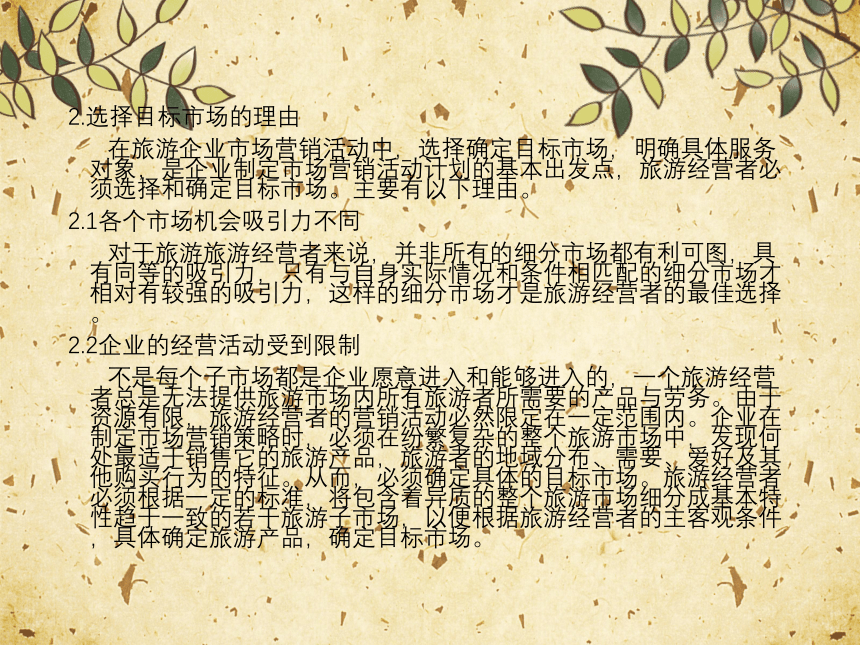 2.选择目标市场的理由
在旅游企业市场营销活动中，选择确定目标市场，明确具体服务
对象，是企业制定市场营销活动计划的基本出发点，旅游经营者必
须选择和确定目标市场。主要有以下理由。
2.1各个市场机会吸引力不同
对于旅游旅游经营者来说，并非所有的细分市场都有利可图，具
有同等的吸引力，只有与自身实际情况和条件相匹配的细分市场才
相对有较强的吸引力，这样的细分市场才是旅游经营者的最佳选择
。
2.2企业的经营活动受到限制
不是每个子市场都是企业愿意进入和能够进入的，一个旅游经营
者总是无法提供旅游市场内所有旅游者所需要的产品与劳务。由于
资源有限，旅游经营者的营销活动必然限定在一定范围内。企业在
制定市场营销策略时，必须在纷繁复杂的整个旅游市场中，发现何
处最适于销售它的旅游产品，旅游者的地域分布、需要、爱好及其
他购买行为的特征。从而，必须确定具体的目标市场。旅游经营者
必须根据一定的标准，将包含着异质的整个旅游市场细分成基本特
性趋于一致的若干旅游子市场，以便根据旅游经营者的主客观条件
，具体确定旅游产品，确定目标市场。